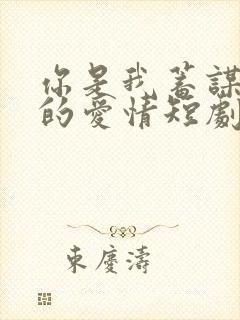 你是我蓄謀
的愛情短劇
東慶濤